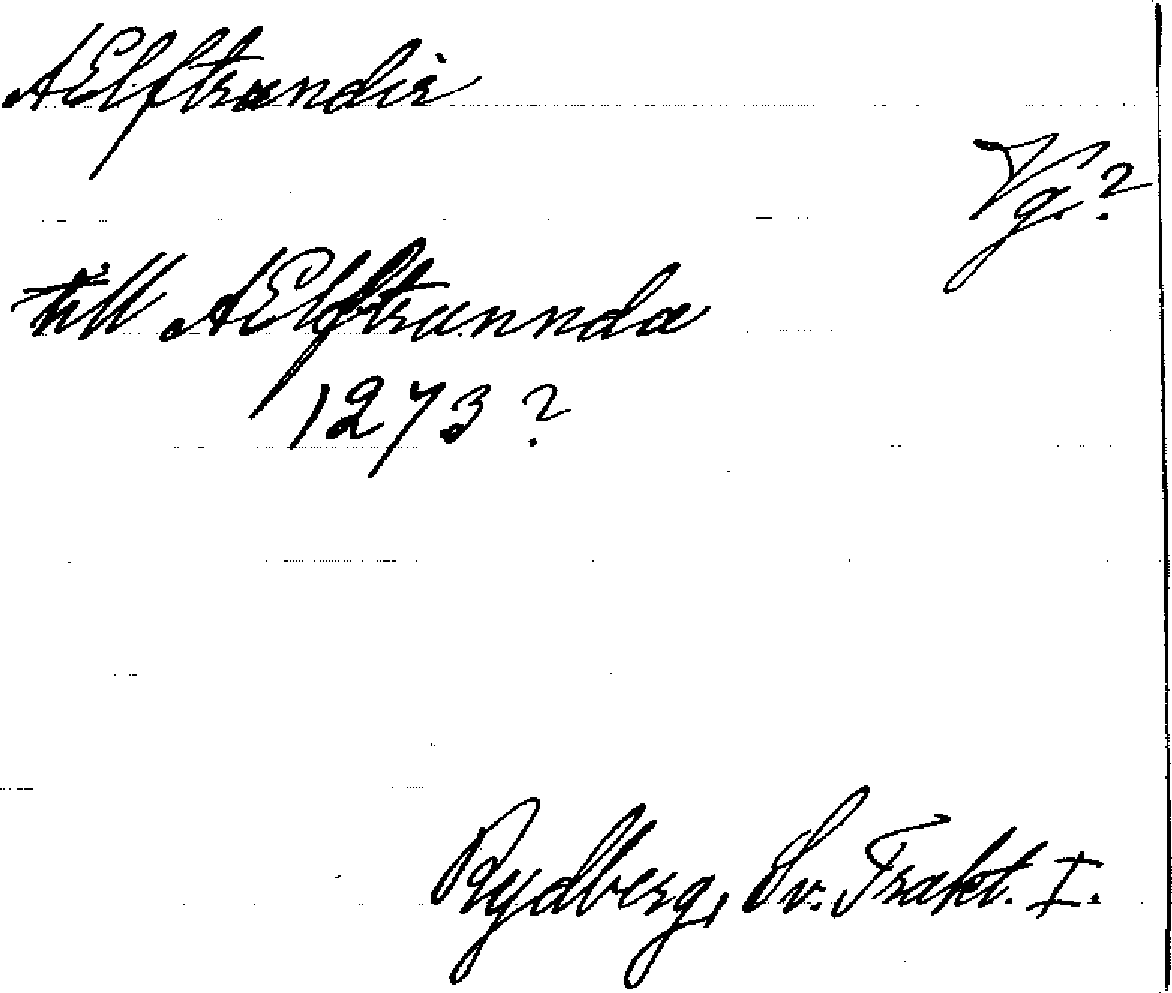 AElftrandir
Vg.?
till AElftrannda
1273?
Rydberg, Sv. Trakt. I.